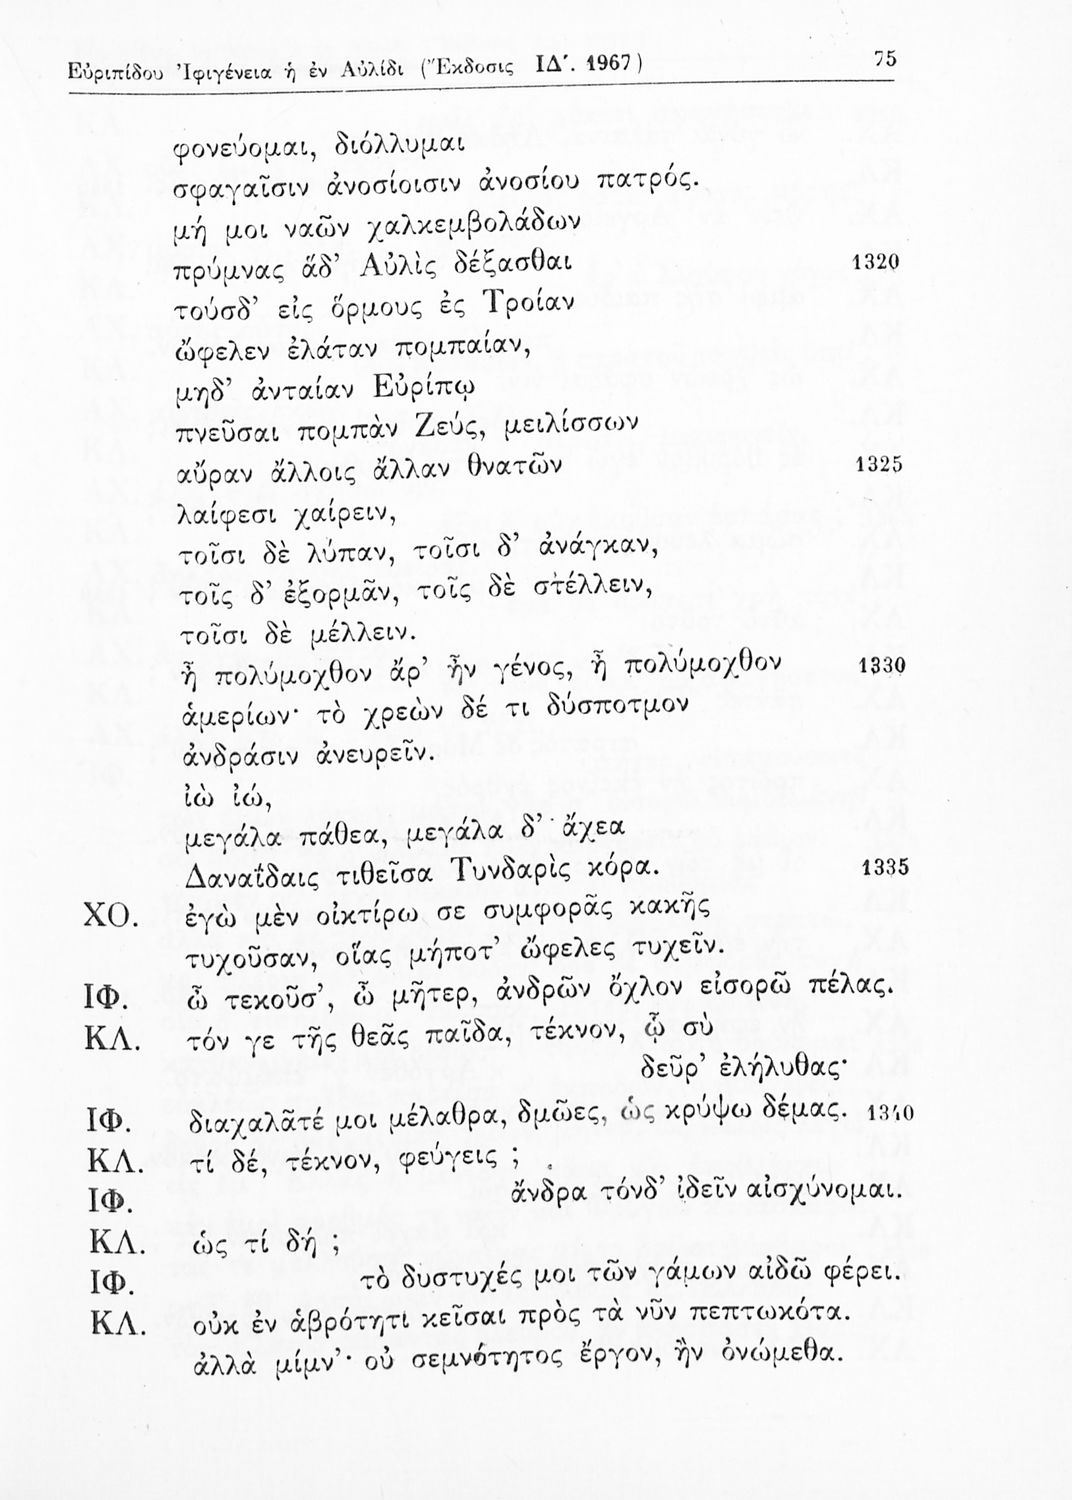 Εὐριπίδου Ἰφιγένεια ἡ ἐν Αὐλίδι (Ἔκδοσις ΙΔ´. 1967) 75
φονεύομαι, διόλλυμαι
σφαγαῖσιν ἀνοσίοισιν ἀνοσίου πατρός.
μή μοι ναῶν χαλκεμβολάδων
πρύμνας ἅδ’ Αὐλὶς δέξασθαι 1320
τούσδ’ εἰς ὅρμους ἐς Τροίαν
ὤφελεν ἐλάταν πομπαίαν,
μηδ’ ἀνταίαν Εὐρίπῳ
πνεῦσαι πομπὰν Ζεύς, μειλίσσων
αὔραν ἄλλοις ἄλλαν θνατῶν 1325
λαίφεσι χαίρειν,
τοῖσι δὲ λύπαν, τοῖσι δ’ ἀνάγκαν,
τοῖς δ’ ἐξορμᾶν, τοῖς δὲ στέλλειν,
τοῖσι δὲ μέλλειν.
ἦ πολύμοχθον ἄρ’ ἦν γένος, ἦ πολύμοχθον 1330
ἁμερίων· τὸ χρεὼν δέ τι δύσποτμον
ἀνδράσιν ἀνευρεῖν.
ἰὼ ἰώ,
μεγάλα πάθεα, μεγάλα δ’ ἄχεα
Δαναΐδαις τιθεῖσα Τυνδαρὶς κόρα. 1335
ΧΟ. ἐγὼ μὲν οἰκτίρω σε συμφορᾶς κακῆς
τυχοῦσαν, οἵας μήποτ’ ὤφελες τυχεῖν.
ΙΦ. ὦ τεκοῦσ’, ὦ μῆτερ, ἀνδρῶν ὄχλον εἰσορῶ πέλας.
ΚΛ. τόν γε τῆς θεᾶς παῖδα, τέκνον, ᾧ σὺ
δεῦρ’ ἐλήλυθας·
ΙΦ. διαχαλᾶτέ μοι μέλαθρα, δμῶες, ὡς κρύψω δέμας. 1340
ΚΛ. τί δέ, τέκνον, φεύγεις ;
ΙΦ. ἄνδρα τόνδ’ ἰδεῖν αἰσχύνομαι.
ΚΛ. ὡς τί δή ;
ΙΦ. τὸ δυστυχές μοι τῶν γάμων αἰδῶ φέρει.
ΚΛ. οὐκ ἐν ἁβρότητι κεῖσαι πρὸς τὰ νῦν πεπτωκότα.
ἀλλὰ μίμν’· οὐ σεμνότητος ἔργον, ἢν ὀνώμεθα.